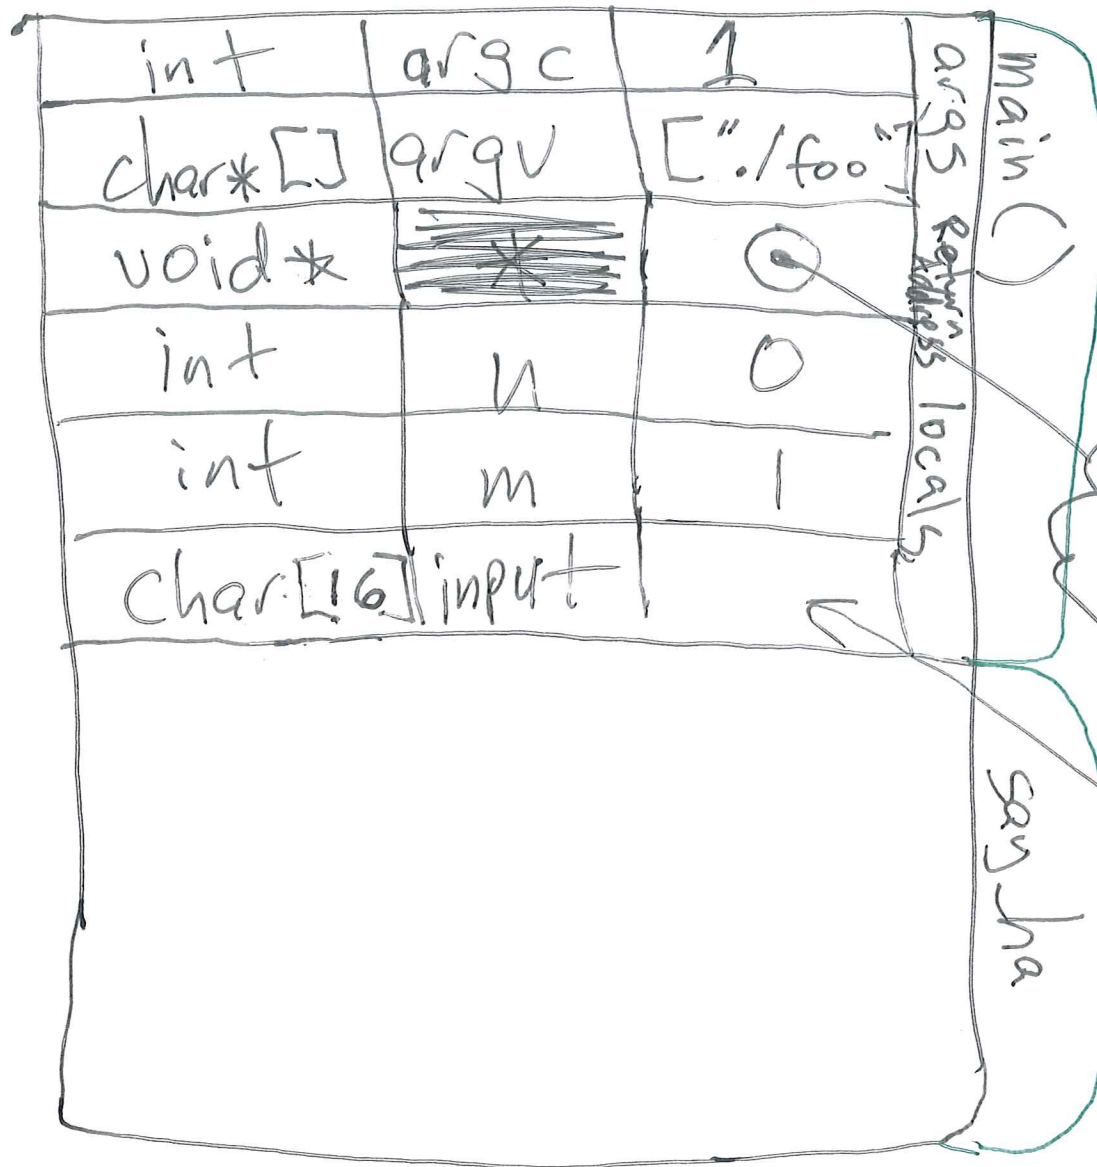 int argc 1
char*[] argv ["./foo"]
void* *
int n 0
int m 1
char[16] input
args Return Address locals
main()
say_ha